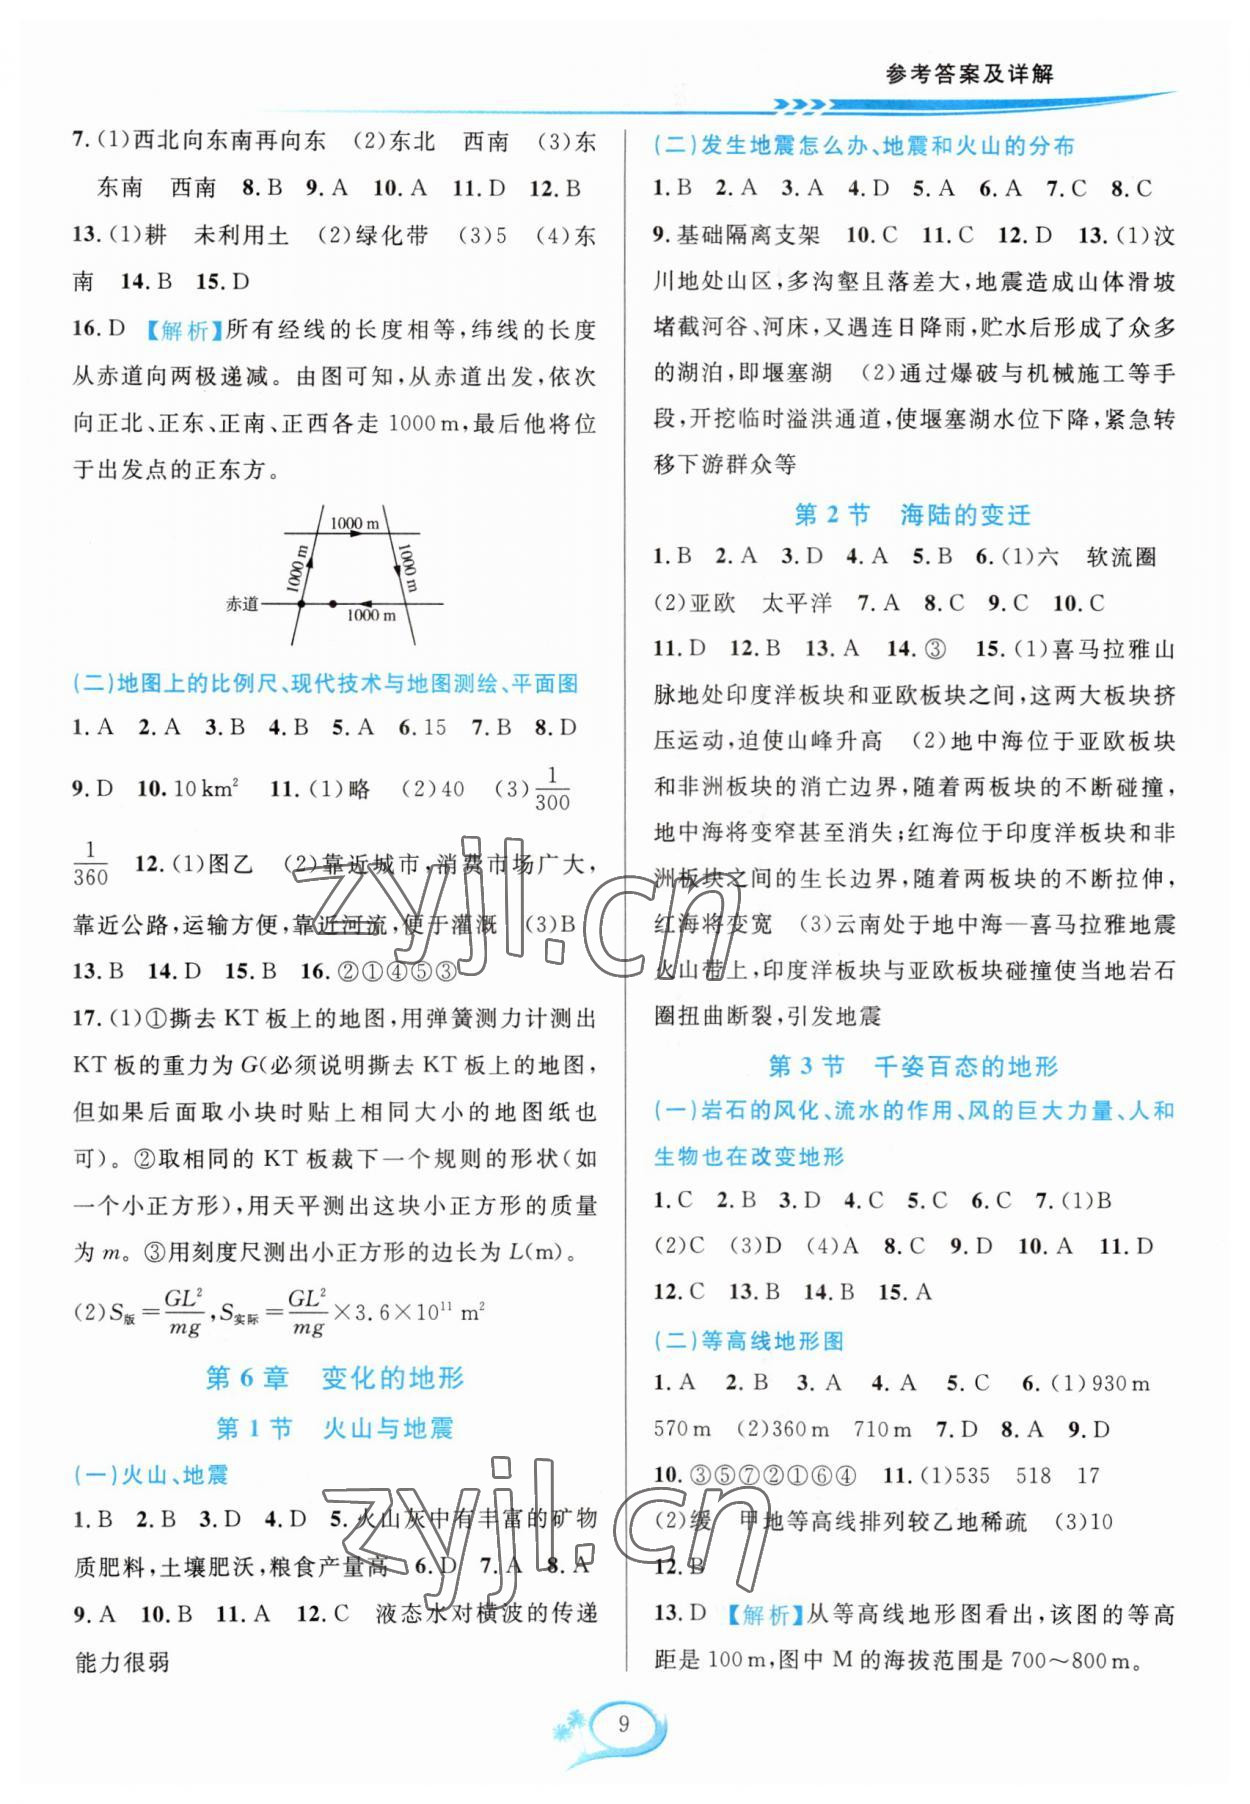 参考答案及详解
7.(1)西北向东南再向东　(2)东北　西南　(3)东
东南　西南　8.B　9.A　10.A　11.D　12.B
13.(1)耕　未利用土　(2)绿化带　(3)5　(4)东
南　14.B　15.D
16.D　【解析】所有经线的长度相等,纬线的长度
从赤道向两极递减。由图可知,从赤道出发,依次
向正北、正东、正南、正西各走1000m,最后他将位
于出发点的正东方。
1000 m
1000 m
1000 m
赤道
1000 m
(二)地图上的比例尺、现代技术与地图测绘、平面图
1.A　2.A　3.B　4.B　5.A　6.15　7.B　8.D
9.D　10.10km²　11.(1)略　(2)40　(3)1/300
1/360　12.(1)图乙　(2)靠近城市,消费市场广大,
靠近公路,运输方便,靠近河流,便于灌溉　(3)B
13.B　14.D　15.B　16.②①④⑤③
17.(1)①撕去KT板上的地图,用弹簧测力计测出
KT板的重力为G(必须说明撕去KT板上的地图,
但如果后面取小块时贴上相同大小的地图纸也
可)。②取相同的KT板裁下一个规则的形状(如
一个小正方形),用天平测出这块小正方形的质量
为m。③用刻度尺测出小正方形的边长为L(m)。
(2)S版=GL²/mg,S实际=GL²/mg×3.6×10¹¹ m²
第6章　变化的地形
第1节　火山与地震
(一)火山、地震
1.B　2.B　3.D　4.D　5.火山灰中有丰富的矿物
质肥料,土壤肥沃,粮食产量高　6.D　7.A　8.A
9.A　10.B　11.A　12.C　液态水对横波的传递
能力很弱
(二)发生地震怎么办、地震和火山的分布
1.B　2.A　3.A　4.D　5.A　6.A　7.C　8.C
9.基础隔离支架　10.C　11.C　12.D　13.(1)汶
川地处山区,多沟壑且落差大,地震造成山体滑坡
堵截河谷、河床,又遇连日降雨,贮水后形成了众多
的湖泊,即堰塞湖　(2)通过爆破与机械施工等手
段,开挖临时溢洪通道,使堰塞湖水位下降,紧急转
移下游群众等
第2节　海陆的变迁
1.B　2.A　3.D　4.A　5.B　6.(1)六　软流圈
(2)亚欧　太平洋　7.A　8.C　9.C　10.C
11.D　12.B　13.A　14.③　15.(1)喜马拉雅山
脉地处印度洋板块和亚欧板块之间,这两大板块挤
压运动,迫使山峰升高　(2)地中海位于亚欧板块
和非洲板块的消亡边界,随着两板块的不断碰撞,
地中海将变窄甚至消失;红海位于印度洋板块和非
洲板块之间的生长边界,随着两板块的不断拉伸,
红海将变宽　(3)云南处于地中海—喜马拉雅地震
火山带上,印度洋板块与亚欧板块碰撞使当地岩石
圈扭曲断裂,引发地震
第3节　千姿百态的地形
(一)岩石的风化、流水的作用、风的巨大力量、人和
生物也在改变地形
1.C　2.B　3.D　4.C　5.C　6.C　7.(1)B
(2)C　(3)D　(4)A　8.C　9.D　10.A　11.D
12.C　13.B　14.B　15.A
(二)等高线地形图
1.A　2.B　3.A　4.A　5.C　6.(1)930m
570m　(2)360m　710m　7.D　8.A　9.D
10.③⑤⑦②①⑥④　11.(1)535　518　17
(2)缓　甲地等高线排列较乙地稀疏　(3)10
12.B
13.D　【解析】从等高线地形图看出,该图的等高
距是100m,图中M的海拔范围是700～800m。
9
zyjl.cn
zyjl.cn